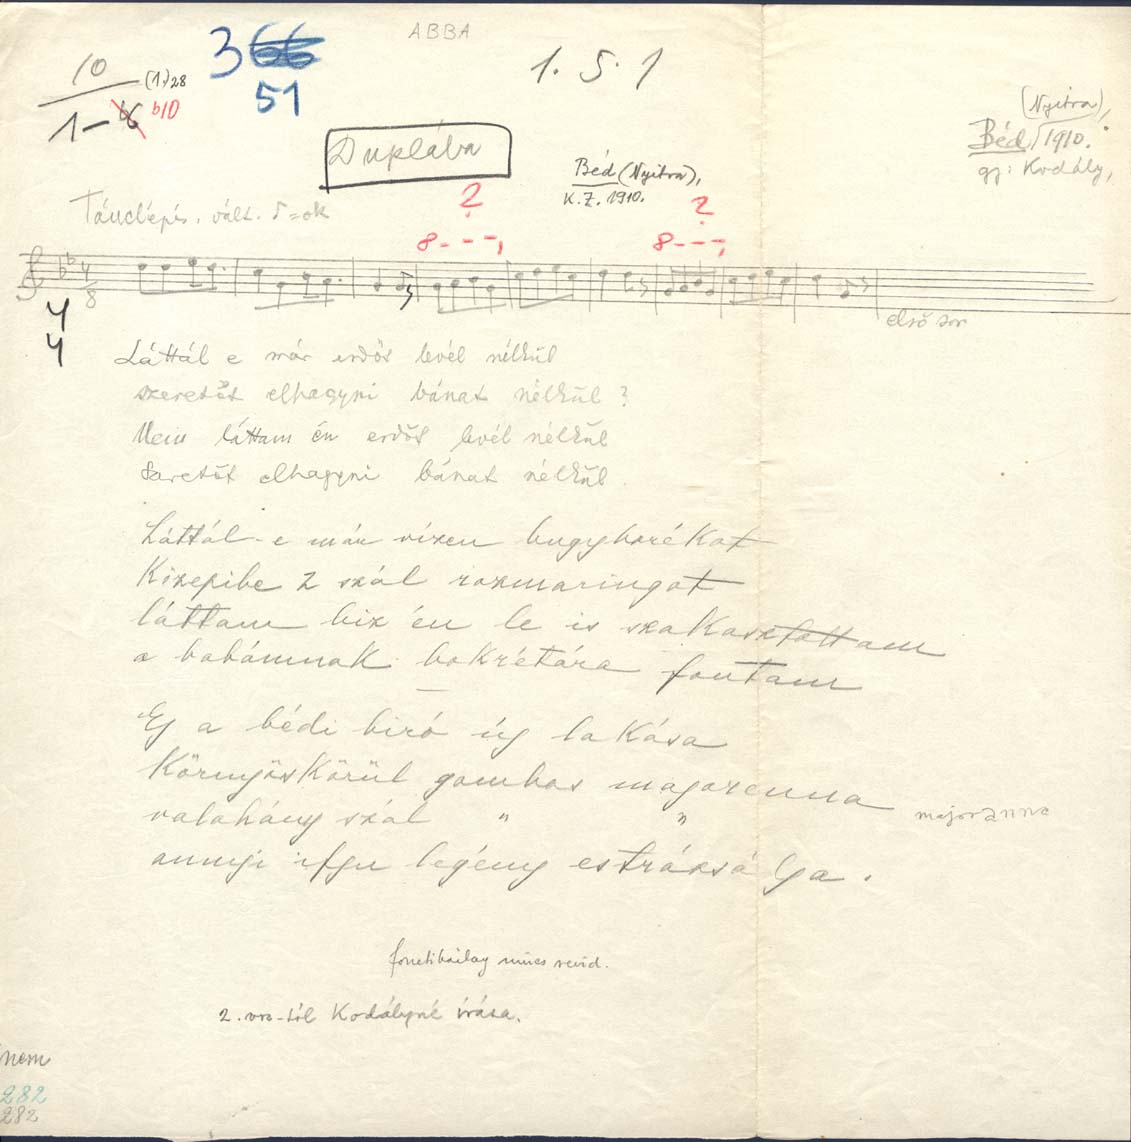 ABBA
10
1-6
(1.)28
b10
366
51
1. 5. 1
(Nyitra),
Béd, 1910.
gy: Kodály,
Duplába
Béd (Nyitra),
K. Z. 1910.
Tánclépés. vált.
?
8---,
?
8---,
4
8
4
4
első sor
Láttál e már erdős levél nélkül
szeretőt elhagyni bánat nélkül?
Nem láttam én erdőt levél nélkül
Szaretőt elhagyni bánat nélkül.
Láttál-e már vizen bugyborékot
Közepibe 2 szál rozmaringot
láttam biz én le is szakasztottam
a babámnak bokrétára fontam
Ej a bédi biró új lakása
Környöskörül gombos majorenna
majoranna
valahány szál " "
annyi ifju legény estrázsálja.
fonetikailag nincs revid.
2. vrs-tól Kodályné írása.
nem
282
282